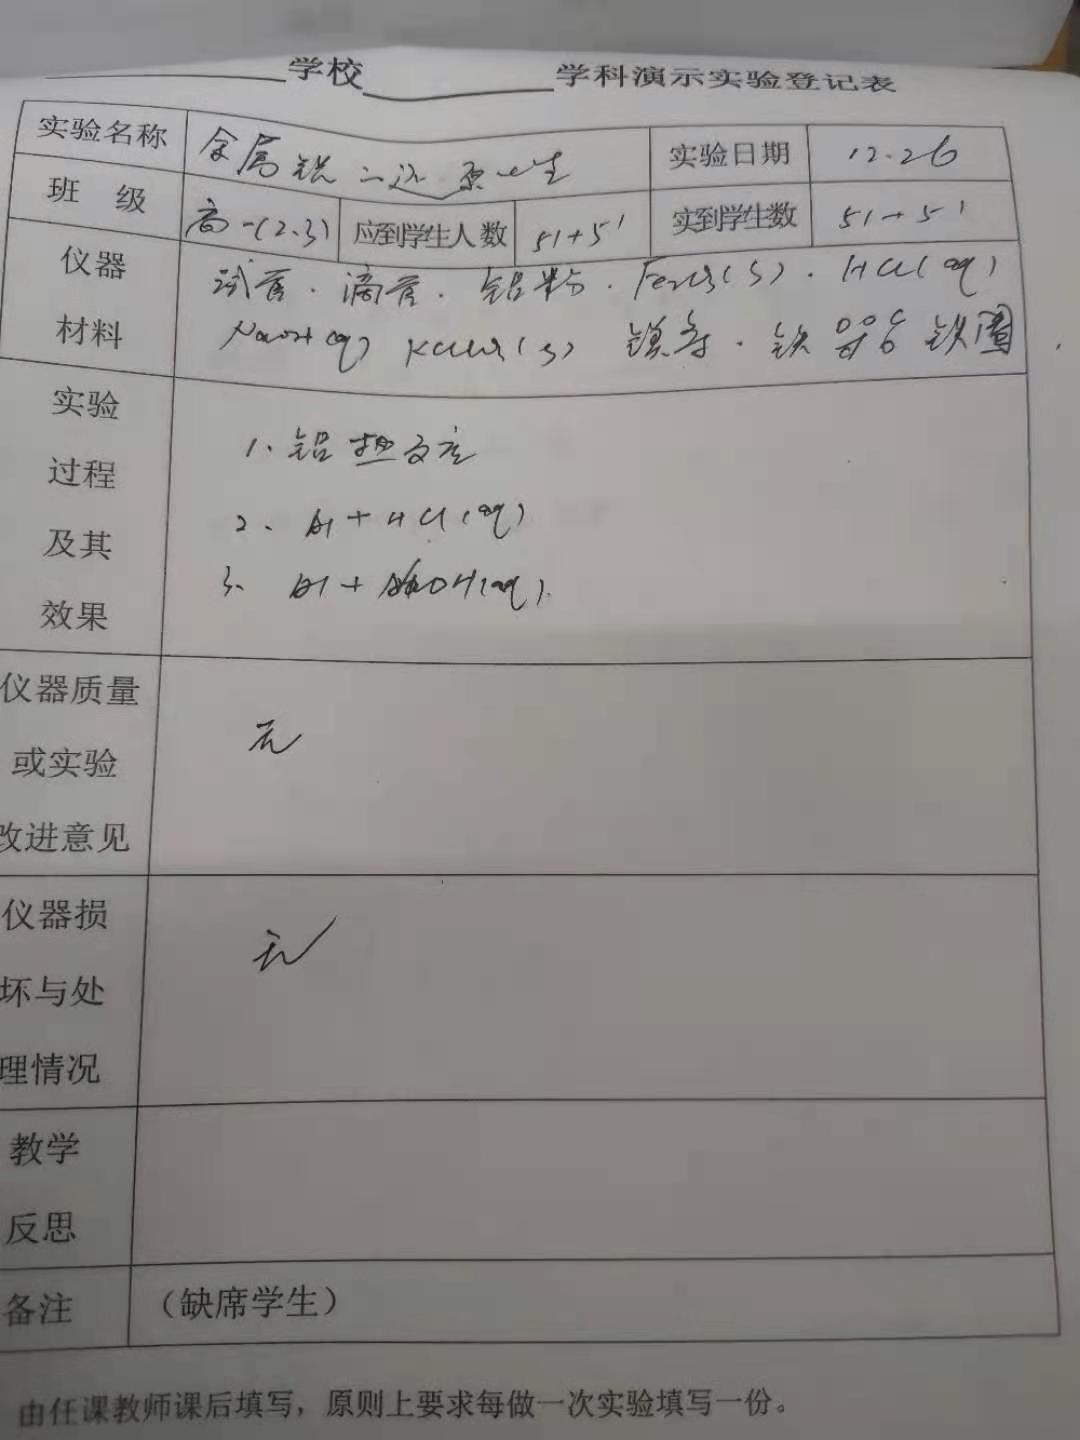 学校 学科演示实验登记表
实验名称 金属铝 还原 性 实验日期 12.26
班 级 高一(2.3) 应到学生人数 51+51 实到学生数 51+51
仪器 试管.滴管.铝粉.Fe2O3(s).HCl(aq)
材料 NaOH(aq) KClO3(s) 镁条.铁 铁圈
实验
过程 1.铝热反应
及其 2. Al+HCl(aq)
效果 3. Al+NaOH(aq).
仪器质量
或实验 无
改进意见
仪器损
坏与处 无
理情况
教学
反思
备注 (缺席学生)
由任课教师课后填写，原则上要求每做一次实验填写一份。